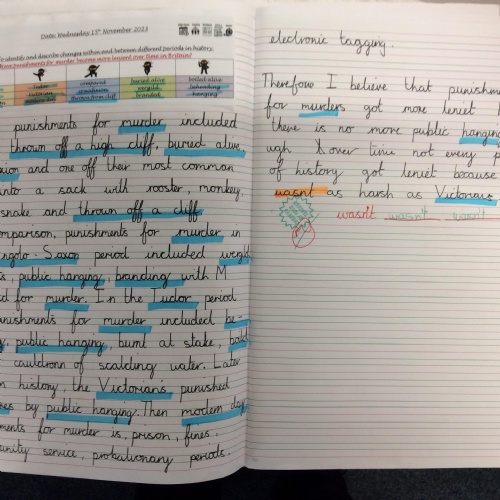 Date: Wednesday 15th November 2023
To identify and describe changes within and between different periods in history.
Have punishments for murder become more lenient over time in Britain?
buried alive
boiled alive
beheading
branded
hanging
punishments for murder included
thrown off a high cliff, buried alive,
and one off their most common
into a sack with rooster, monkey,
snake and thrown off a cliff.
comparison, punishments for murder in
Anglo-Saxon period included wergild
public hanging, branding with M
for murder. In the Tudor period
punishments for murder included be-
public hanging, burnt at stake, boil
cauldron of scalding water. Later
in history, the Victorians punished
by public hanging. Then modern day
ments for murder is, prison, fines,
unity service, probationary periods.
electronic tagging.
Therefore I believe that punishm
for murders got more leniet b
there is no more public hanging
ugh over time not every p
of history got leniet because
wasnt as harsh as Victorians.
wasn't wasn't wasn't